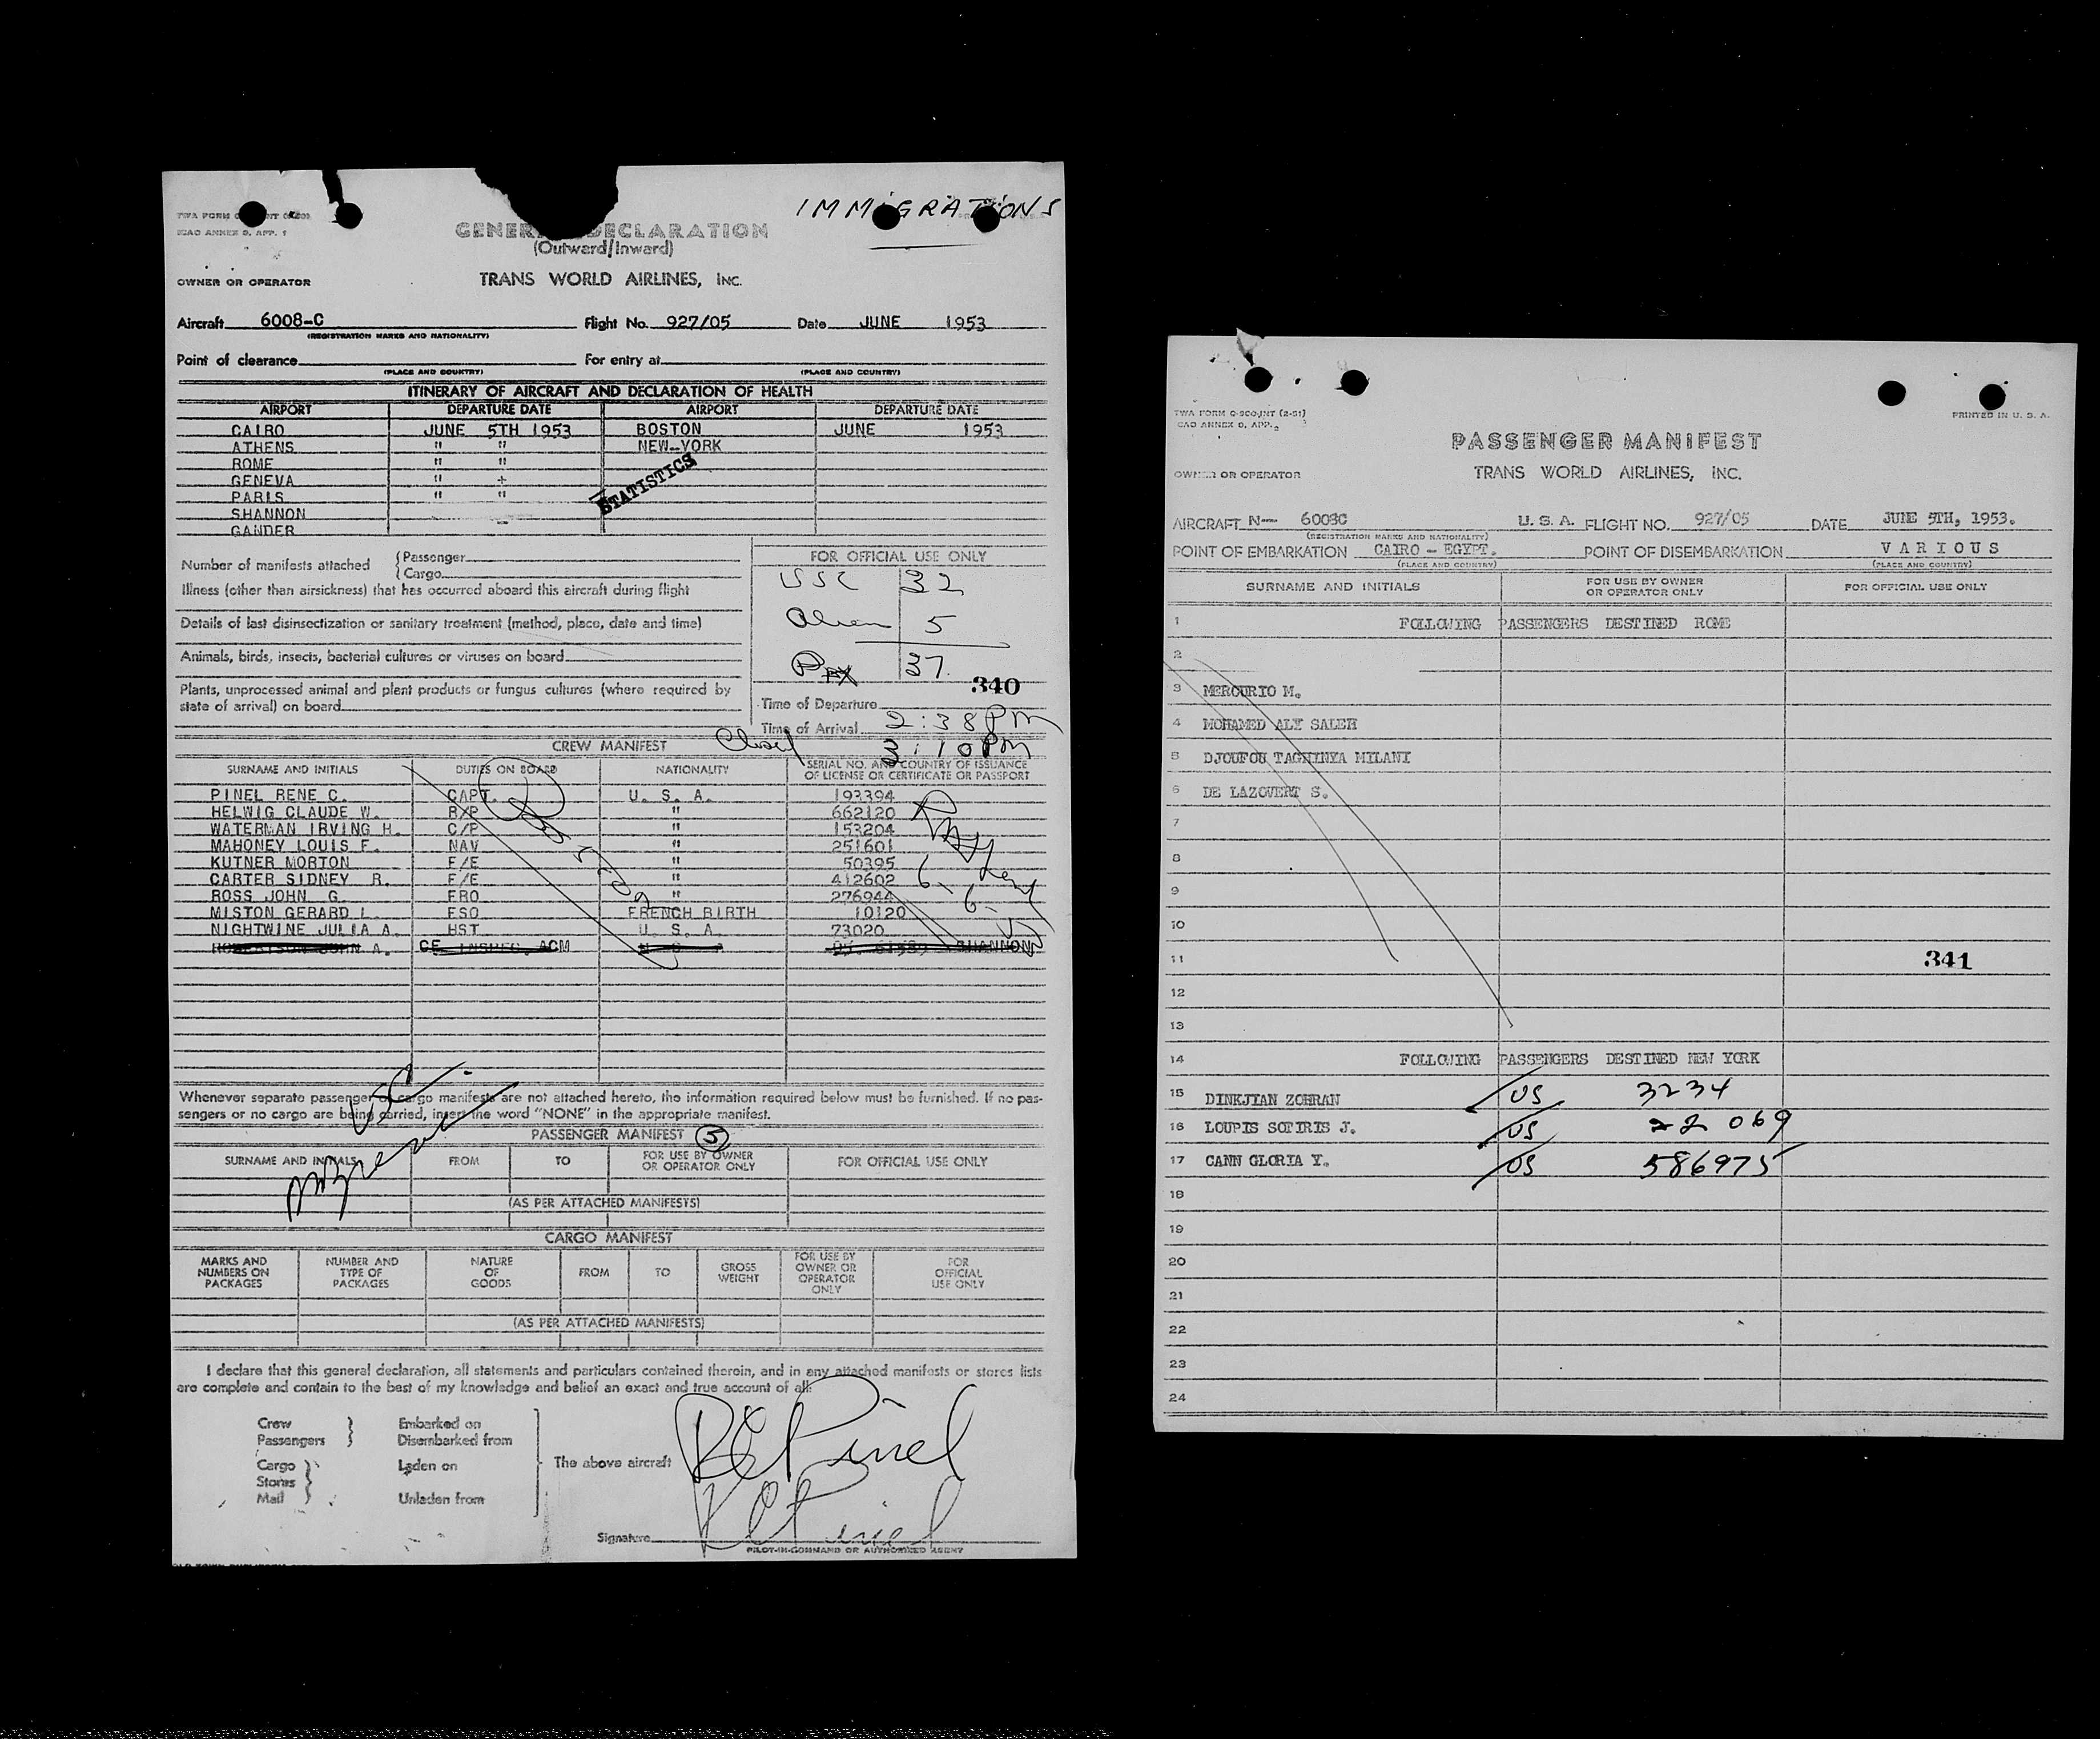 IMMIGRATIONS
TWA FORM
ICAO ANNEX 9, APP. 1
GENERAL DECLARATION
(Outward/Inward)
OWNER OR OPERATOR TRANS WORLD AIRLINES, INC.
Aircraft 6008-C Flight No. 927/05 Date JUNE 1953
(REGISTRATION MARKS AND NATIONALITY)
Point of clearance For entry at
(PLACE AND COUNTRY) (PLACE AND COUNTRY)
ITINERARY OF AIRCRAFT AND DECLARATION OF HEALTH
AIRPORT DEPARTURE DATE AIRPORT DEPARTURE DATE
CAIRO JUNE 5TH 1953 BOSTON JUNE 1953
ATHENS " " NEW-YORK
ROME " "
GENEVA " +
PARIS " "
SHANNON
GANDER
STATISTICS
Number of manifests attached { Passenger
{ Cargo
Illness (other than airsickness) that has occurred aboard this aircraft during flight
Details of last disinsectization or sanitary treatment (method, place, date and time)
Animals, birds, insects, bacterial cultures or viruses on board
Plants, unprocessed animal and plant products or fungus cultures (where required by
state of arrival) on board
FOR OFFICIAL USE ONLY
USC 32
Alien 5
Pax 37
340
Time of Departure
Time of Arrival 2:38 PM
Closed 3:10 PM
CREW MANIFEST
SURNAME AND INITIALS DUTIES ON BOARD NATIONALITY SERIAL NO. AND COUNTRY OF ISSUANCE
OF LICENSE OR CERTIFICATE OR PASSPORT
PINEL RENE C. CAPT. U. S. A. 193394
HELWIG CLAUDE W. RXP " 662120
WATERMAN IRVING H. C/P " 153204
MAHONEY LOUIS F. NAV " 251601
KUTNER MORTON F/E " 50395
CARTER SIDNEY R. F/E " 412602
ROSS JOHN G. FRO " 276944
MISTON GERARD L. FSO FRENCH BIRTH 10120
NIGHTWINE JULIA A. HST U. S. A. 73020
ROBERTSON JOHN A. CF. INSPEC. ACM SHANNON
Whenever separate passenger or cargo manifests are not attached hereto, the information required below must be furnished. If no pas-
sengers or no cargo are being carried, insert the word "NONE" in the appropriate manifest.
PASSENGER MANIFEST 5
SURNAME AND INITIALS FROM TO FOR USE BY OWNER
OR OPERATOR ONLY FOR OFFICIAL USE ONLY
(AS PER ATTACHED MANIFESTS)
CARGO MANIFEST
MARKS AND NUMBERS ON PACKAGES NUMBER AND TYPE OF PACKAGES NATURE OF GOODS FROM TO GROSS WEIGHT FOR USE BY OWNER OR OPERATOR ONLY FOR OFFICIAL USE ONLY
(AS PER ATTACHED MANIFESTS)
I declare that this general declaration, all statements and particulars contained therein, and in any attached manifests or stores lists
are complete and contain to the best of my knowledge and belief an exact and true account of all:
Crew Embarked on
Passengers Disembarked from
Cargo Laden on The above aircraft
Stores
Mail Unladen from
R C Pinel
R C Pinel
Signature
PILOT-IN-COMMAND OR AUTHORIZED AGENT
TWA FORM O-9COUNT (2-51) PRINTED IN U. S. A.
CAO ANNEX 9, APP. 2
PASSENGER MANIFEST
OWNER OR OPERATOR TRANS WORLD AIRLINES, INC.
AIRCRAFT N-- 6008C U. S. A. FLIGHT NO. 927/05 DATE JUNE 5TH, 1953.
(REGISTRATION MARKS AND NATIONALITY)
POINT OF EMBARKATION CAIRO - EGYPT. POINT OF DISEMBARKATION VARIOUS
(PLACE AND COUNTRY) (PLACE AND COUNTRY)
SURNAME AND INITIALS FOR USE BY OWNER
OR OPERATOR ONLY FOR OFFICIAL USE ONLY
1 FOLLOWING PASSENGERS DESTINED ROME
2
3 MERCURIO M.
4 MOHAMED ALY SALEH
5 DJOUFOU TAGHINYA MILANI
6 DE LAZOVERT S.
7
8
9
10
11 341
12
13
14 FOLLOWING PASSENGERS DESTINED NEW YORK
15 DINKJIAN ZOHRAN US 3234
16 LOUPIS SOTIRIS J. US 22 069
17 CANN GLORIA Y. US 586975
18
19
20
21
22
23
24